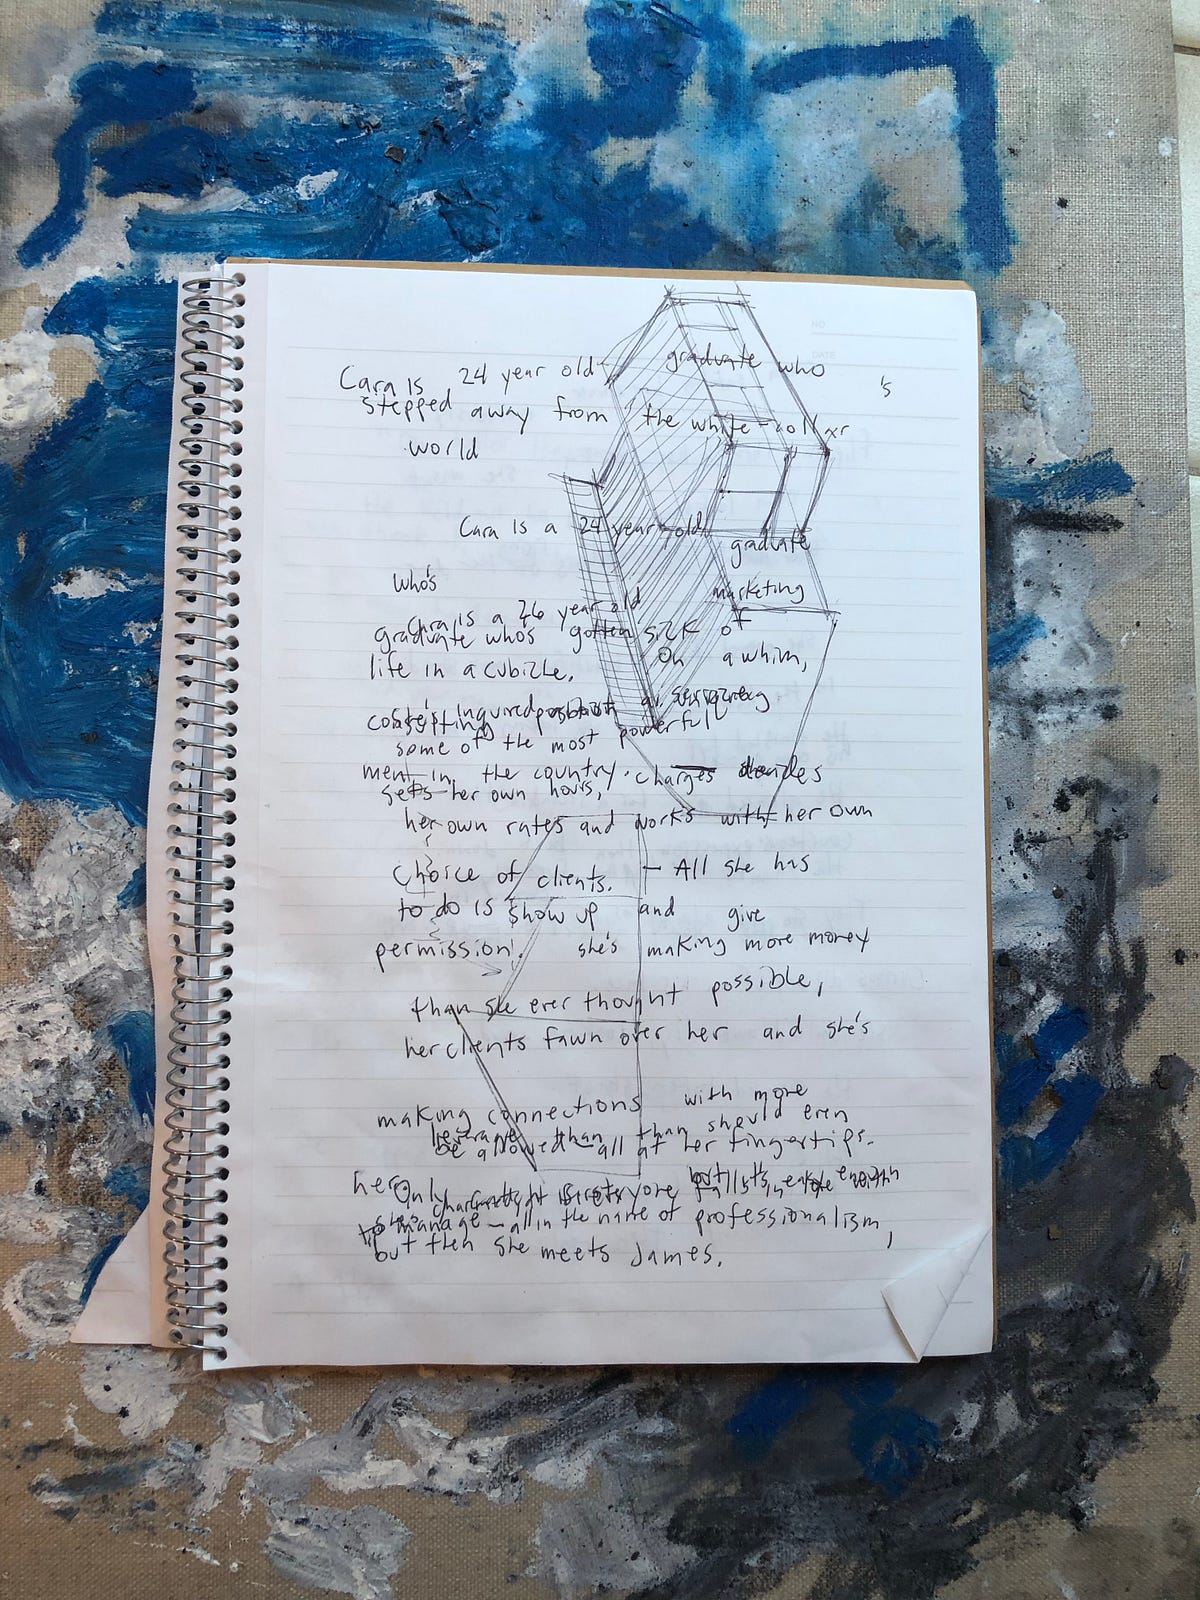 NO
DATE
Cara is 24 year old graduate who 's
stepped away from the white-collar
world
Cara is a 24 year old graduate
who's
Cara is a 26 year old marketing
graduate who's gotten sick of
life in a cubicle. On a whim,
she's inquired about a surrogacy
some of the most powerful
men in the country. charges decides
sets her own hours,
her own rates and works with her own
choice of clients. – All she has
to do is show up and give
permission. she's making more money
than she ever thought possible,
her clients fawn over her and she's
making connections with more
leverage than than should even
be allowed – all at her fingertips.
her only
manage – all in the name of professionalism,
but then she meets James.